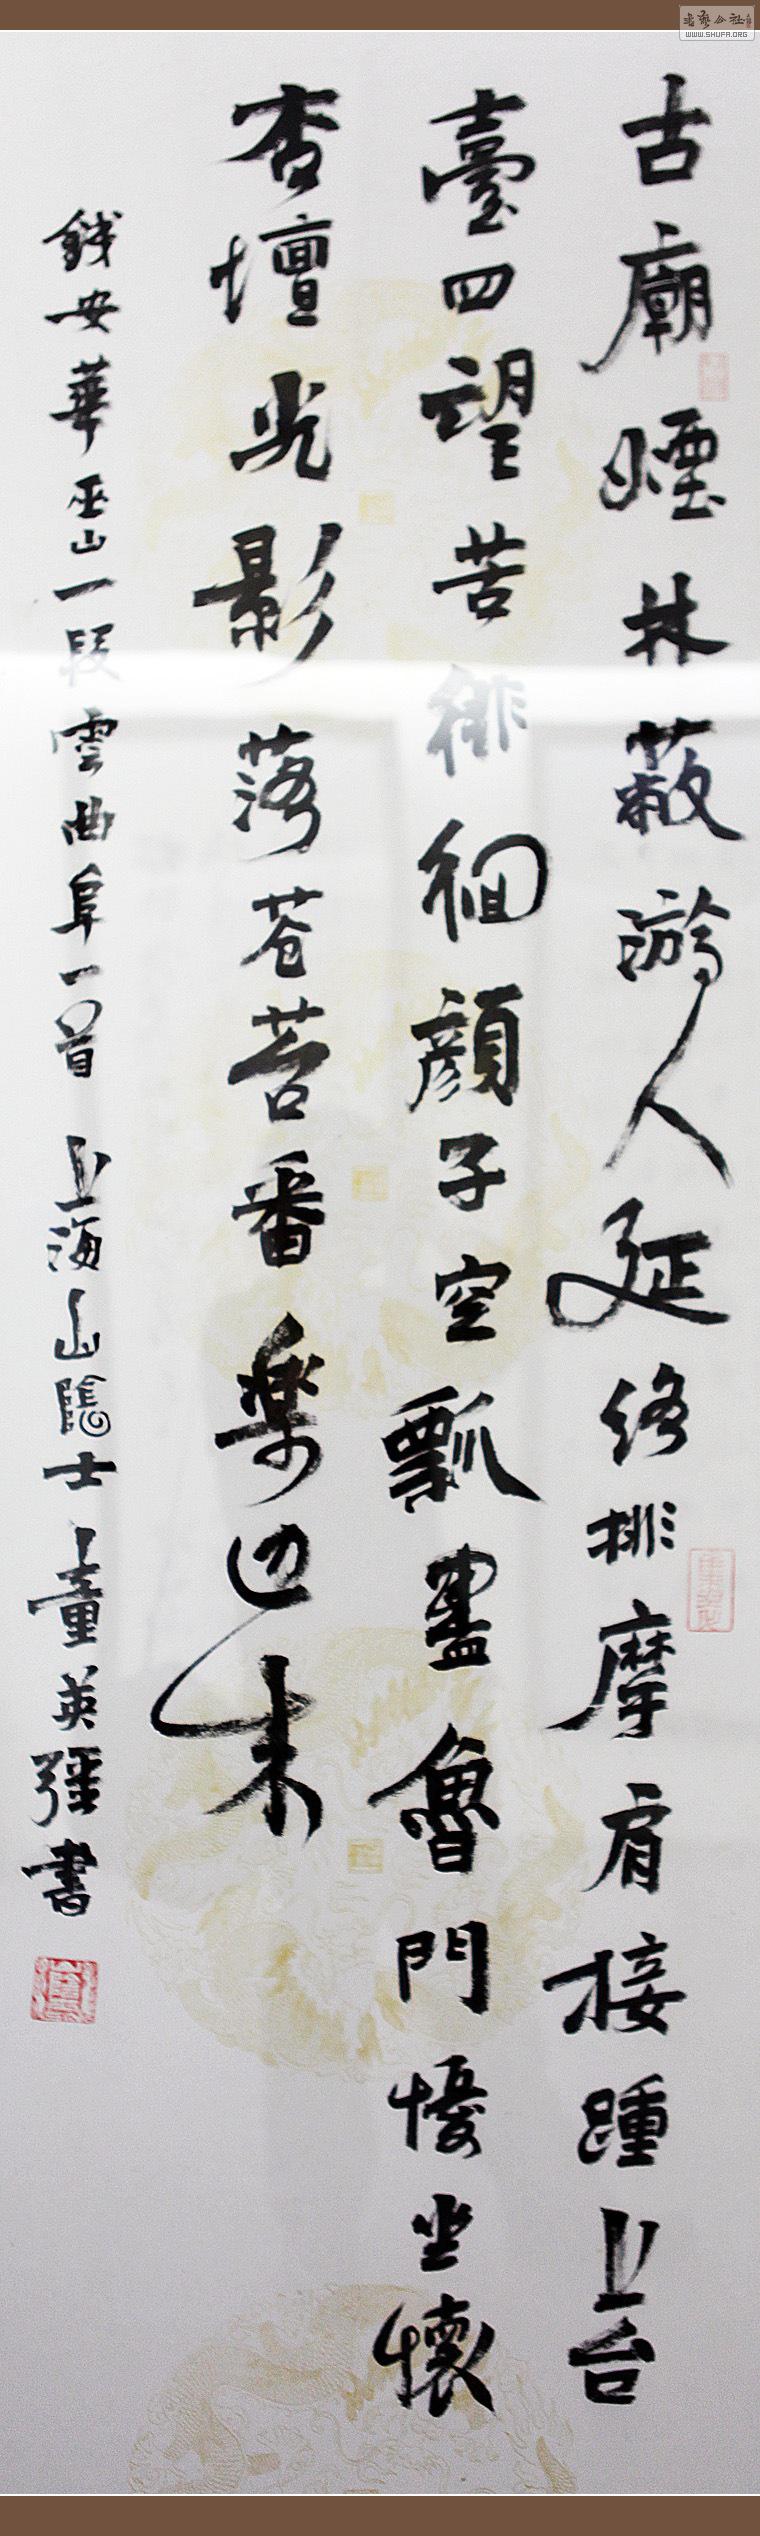 古廟煙林蔽游人延絡排摩肩接踵上台
臺四望苦徘徊顏子空瓢盡魯門憂坐懷
杏壇光影落蒼苔番樂迎来
錢安華巫山一段雲曲阜一首 上海山隐士 童英强書
WWW.SHUFA.ORG